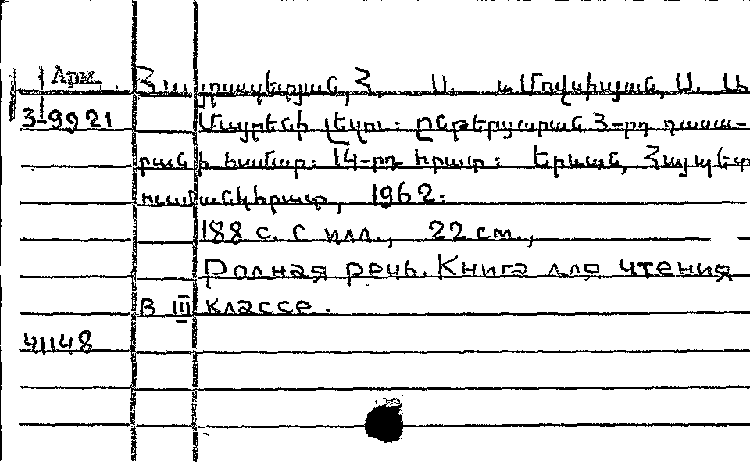 Арм. Հայրապետյան, Հ. Ս. և Մովսիսյան, Ս. Ա.
3-9921 Մայրենի լեզու: Ընթերցարան 3-րդ դասա-
րանի համար: 14-րդ հրատ: Երևան, Հայպետ
ուսմանկհրատ, 1962:
188 с. с илл., 22 см.,
Родная речь. Книга для чтения
в III классе.
41148